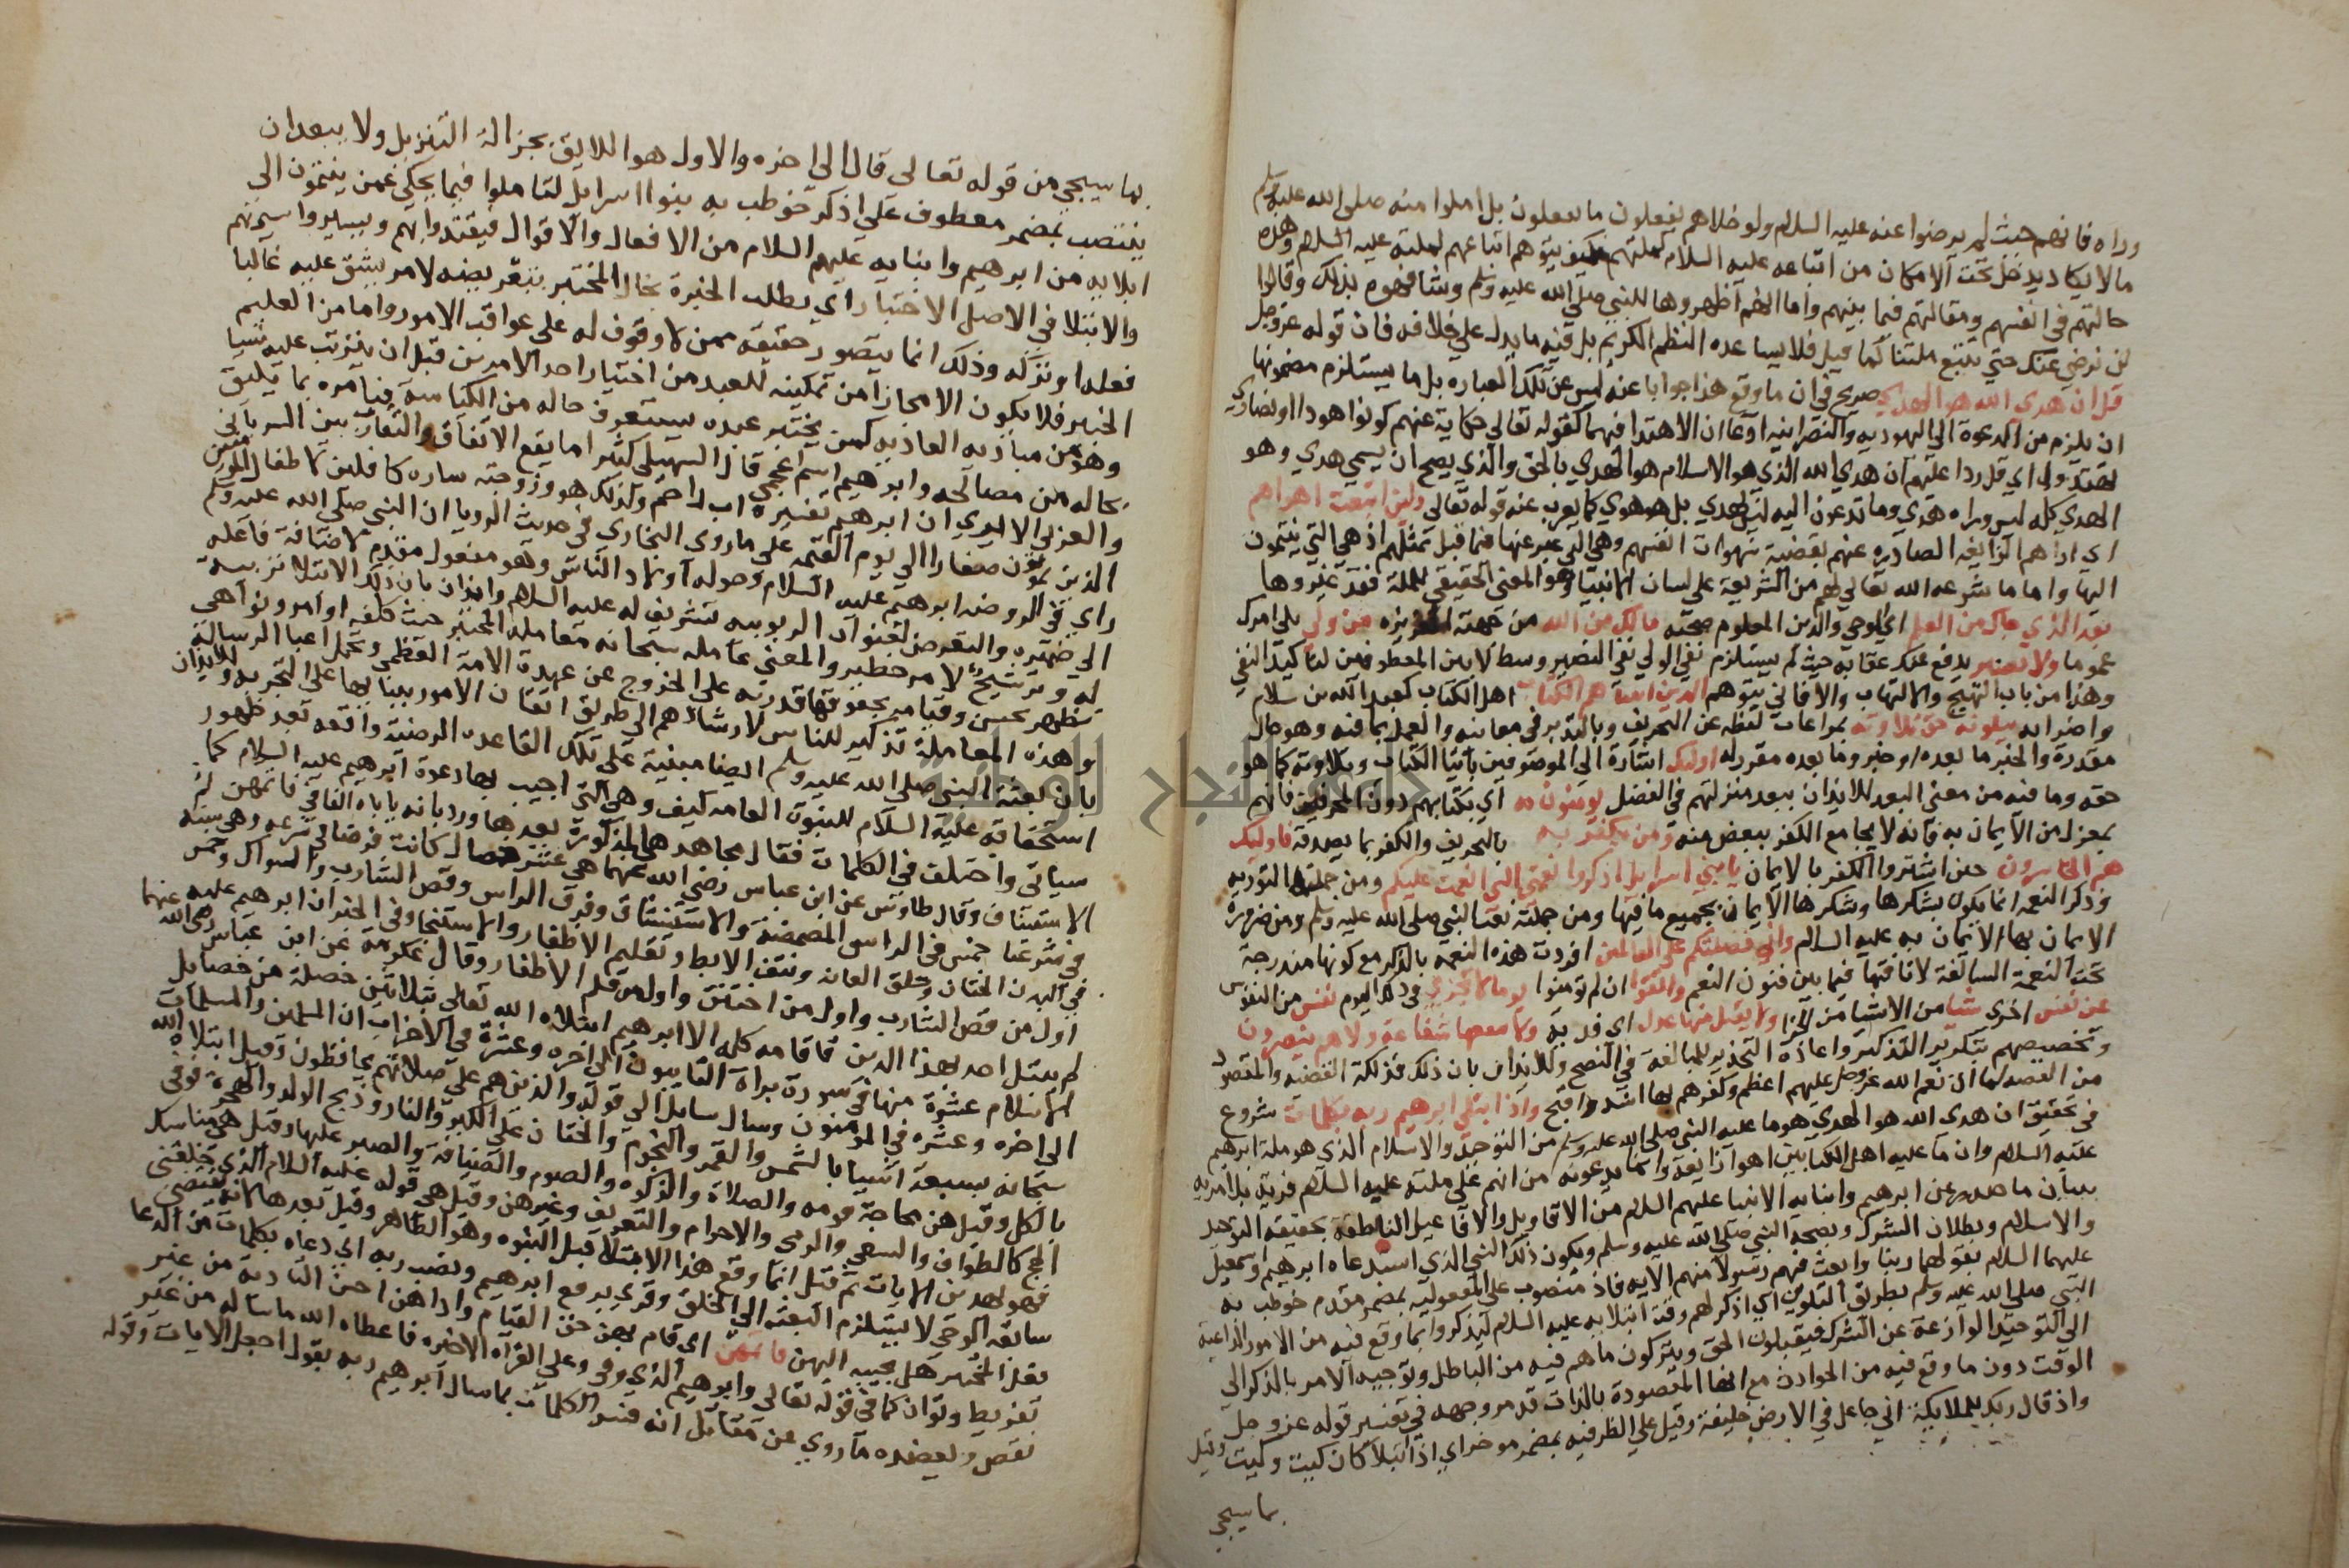 وراه فانهم حيث لم يرضوا عنه عليه السلام ولو خلاهم يفعلون ما يفعلون بل املوا منه صلى الله عليه وسلم
ما لا يكاد يدخل تحت الامكان من اتباعه عليه السلام لملتهم فكيف يتوهم اتباعهم لملته عليه السلام وهذه
حالتهم في انفسهم ومقالتهم فيما بينهم واما انهم اظهروها للنبي صلى الله عليه وسلم وشافهوه بذلك وقالوا
لن نرضى عنك حتى تتبع ملتنا كما قيل فلا يساعده النظم الكريم بل فيه ما يدل على خلافه فان قوله عز وجل
قل ان هدى الله هو الهدى صريح في ان ما وقع هذا جوابا عنه ليس عين تلك العباره بل ما يستلزم مضمونها
ان يلزم من الدعوة الى اليهوديه والنصرانيه ادعا ان الاهتدا فيهما كقوله تعالى حكاية عنهم كونوا هودا او نصارى
تهتدوا اي قل ردا عليهم ان هدى الله الذي هو الاسلام هو الهدى بالحق والذي يصح ان يسمى هدى وهو
الهدى كله ليس وراه هدى وما تدعون اليه ليس بهدى بل هو هوى كما يعرب عنه قوله تعالى ولئن اتبعت اهواهم
اي اراهم الزايغه الصادره عنهم بقضية شهوات انفسهم وهي التي عبر عنها فيما قبل بملتهم اذ هي التي ينتمون
اليها واما ما شرعه الله تعالى لهم من الشريعة على لسان الانبيا وهو المعنى الحقيقي للملة فقد غيروها
بعد الذي جاك من العلم اي الوحي والدين المعلوم صحته مالك من الله من جهته العزيزه من ولي يلي امرك
عموما ولا نصير يدفع عنك عقابه وحيث لم يستلزم نفي الولي نفي النصير وسط لا بين المعطوفين لتاكيد النفي
وهذا من باب التهييج والالهاب والا فاني يتوهم الذين اتيناهم الكتاب اهل الكتاب كعبد الله بن سلام
واضرابه يتلونه حق تلاوته بمراعات لفظه عن التحريف وبالتدبر في معانيه والعمل بما فيه وهو حال
مقدرة والخبر ما بعده او خبر وما بعده مقرر له اوليك اشارة الى الموصوفين بايتا الكتاب وتلاوته كما هو
حقه وما فيه من معنى البعد للايذان ببعد منزلتهم في الفضل يومنون به اي بكتابهم دون المحرفين فانهم
بمعزل من الايمان به فانه لا يجامع الكفر ببعض منه ومن يكفر به بالتحريف والكفر بما يصدقه فاوليك
هم الخاسرون حين اشتروا الكفر بالايمان يا بني اسرايل اذكروا نعمتي التي انعمت عليكم ومن جملتها التوريه
وذكر النعمه انما يكون بشكرها وشكرها الايمان بجميع ما فيها ومن جملته نعت النبي صلى الله عليه وسلم ومن ضرورة
الايمان بها الايمان به عليه السلام واني فضلتكم على العالمين افردت هذه النعمه بالذكر مع كونها مندرجة
تحت النعمة السالفة لانافتها فيما بين فنون النعم واتقوا ان لم تومنوا يوما لا تجزي في ذلك اليوم نفس من النفوس
عن نفس اخرى شيا من الاشيا من الجزا ولا يقبل منها عدل اي فديه ولا تنفعها شفاعة ولا هم ينصرون
وتخصيصهم بتكرير التذكير واعادة التحذير للمبالغة في النصح وللايذان بان ذلك فذلكة القضيه والمقصود
من القصه لما ان نعم الله عز وجل عليهم اعظم وكفرهم بها اشد واقبح واذا ابتلى ابرهيم ربه بكلمات شروع
في تحقيق ان هدى الله هو الهدى هو ما عليه النبي صلى الله عليه وسلم من التوحيد والاسلام الذي هو ملة ابرهيم
عليه السلام وان ما عليه اهل الكتابين اهوا زايغة وان ما يدعونه من انهم على ملته عليه السلام فرية بلا مريه
ببيان ما صدر عن ابرهيم وابنايه الانبيا عليهم السلام من الاقاويل والافاعيل الناطقة بحقيقة التوحيد
والاسلام وبطلان الشرك وبصحة النبي صلى الله عليه وسلم وبكون ذلك النبي الذي استدعاه ابرهيم واسمعيل
عليهما السلام بقولهما ربنا وابعث فيهم رسولا منهم الايه فاذ منصوب على المفعوليه بمضمر مقدم خوطب به
النبي صلى الله عليه وسلم بطريق التلوين اي اذكر لهم وقت ابتلايه عليه السلام ليتذكروا بما وقع فيه من الامور الداعية
الى التوحيد الوازعة عن الشرك فيقبلون الحق ويتركون ما هم فيه من الباطل وتوجيه الامر بالذكر الى
الوقت دون ما وقع فيه من الحوادث مع انها المقصودة بالذات قد مر وجهه في تفسير قوله عز وجل
واذ قال ربك للملايكة اني جاعل في الارض خليفة وقيل على الظرفيه بمضمر موخر اي اذ ابتلاه كان كيت وكيت وقيل
بما سيجي
بما سيجي من قوله تعالى قال الى اخره والاول هو اللايق بجزالة التنزيل ولا يبعد ان
ينتصب بمضمر معطوف على اذكر خوطب به بنوا اسرايل ليتاملوا فيما يحكى عمن ينتمون الى
ابلايه من ابرهيم وابنايه عليهم السلام من الافعال والاقوال فيقتدوا بهم ويسيروا سيرتهم
والابتلا في الاصل الاختبار اي يطلب الخبرة بحال المختبر بتعريضه لامر يشق عليه غالبا
فعله او تركه وذلك انما يتصور حقيقة ممن لا وقوف له على عواقب الامور واما من العليم
الخبير فلا يكون الا مجازا من تمكينه للعبد من اختيار احد الامرين قبل ان يترتب عليه شيا
وهو من مباديه العاديه كمن يختبر عبده ليتعرف حاله من الكياسة فيامره بما يليق
بحاله من مصالحه وابرهيم اسم اعجمي قال السهيلي كثيرا ما يقع الاتفاق والتقارب بين السرياني
والعربي الا يرى ان ابرهيم تفسيره اب راحم ولذلك هو وزوجته ساره كافلين لاطفال المومنين
الذين يموتون صغارا الى يوم القيمه على ما روى البخاري في حديث الرويا ان النبي صلى الله عليه وسلم
راي في الروضه ابرهيم عليه السلام وحوله اولاد الناس وهو مفعول مقدم لاضافة فاعله
الى ضميره والتعرض لعنوان الربوبيه تشريف له عليه السلام وايذان بان ذلك الابتلا تربية
له وترشيح لامر خطير والمعنى عامله سبحانه معاملة المختبر حيث كلفه اوامر ونواهي
تظهر بحسن قيامه بحقوقها قدرته على الخروج عن عهدة الامامة العظمى وتحمل اعبا الرسالة
وهذه المعاملة تذكير للناس لارشادهم الى طريق اتقان الامور ببنايها على التجربه وللايذان
بان بعثة النبي صلى الله عليه وسلم ايضا مبنية على تلك القاعده الرصينه واقعه بعد ظهور
استحقاقه عليه السلام للنبوة العامه كيف وهي التي اجيب بها دعوة ابرهيم عليه السلام كما
سياتي واختلف في الكلمات فقال مجاهد هي المذكورة بعدها ورد بانه ياباه الفا في فاتمهن ثم
الاستيناف وقال طاوس عن ابن عباس رضي الله عنهما هي عشر خصال كانت فرضا في شرعه وهي سنة
في شرعنا خمس في الراس المضمضة والاستنشاق وفرق الراس وقص الشارب والسواك وخمس
في البدن الختان وحلق العانه ونتف الابط وتقليم الاظفار والاستنجا وفي الخبر ان ابرهيم عليه
اول من قص الشارب واول من اختتن واول من قلم الاظفار وقال عكرمة عن ابن عباس رضي الله عنهما
لم يبتل احد بهذا الدين فاقامه كله الا ابرهيم ابتلاه الله تعالى بثلاثين خصلة من خصايل
الاسلام عشرة منها في سورة براة التايبون الى اخره وعشرة في الاحزاب ان المسلمين والمسلمات
الى اخره وعشره في المومنون وسال سايل الى قوله والذين هم على صلاتهم يحافظون وقيل ابتلاه الله
سبحانه بسبعة اشيا بالشمس والقمر والنجوم والختان على الكبر والنار وذبح الولد والهجرة فوفى
بالكل وقيل هن محاجة قومه والصلاة والزكوه والصوم والضيافة والصبر عليها وقيل هي مناسك
الحج كالطواف والسعي والرمي والاحرام والتعريف وغيرهن وقيل هي قوله عليه السلام الذي خلقني
فهو يهدين الايات ثم قيل انما وقع هذا الابتلا قبل النبوه وهو الظاهر وقيل بعدها لانه يقتضي
سابقة الوحي لا يستلزم البعثه الى الخلق وقرى برفع ابرهيم ونصب ربه اي دعاه بكلمات من الدعا
فعل المختبر هل يجيبه اليهن فاتمهن اي قام بهن حق القيام واداهن احسن التادية من غير
تفريط وتوان كما في قوله تعالى وابرهيم الذي وفى وعلى القراه الاخيره فاعطاه الله ما ساله من غير
نقص ويعضده ما روي عن مقاتل انه فسر الكلمات بما سال ابرهيم ربه بقول اجعل الايات وقوله